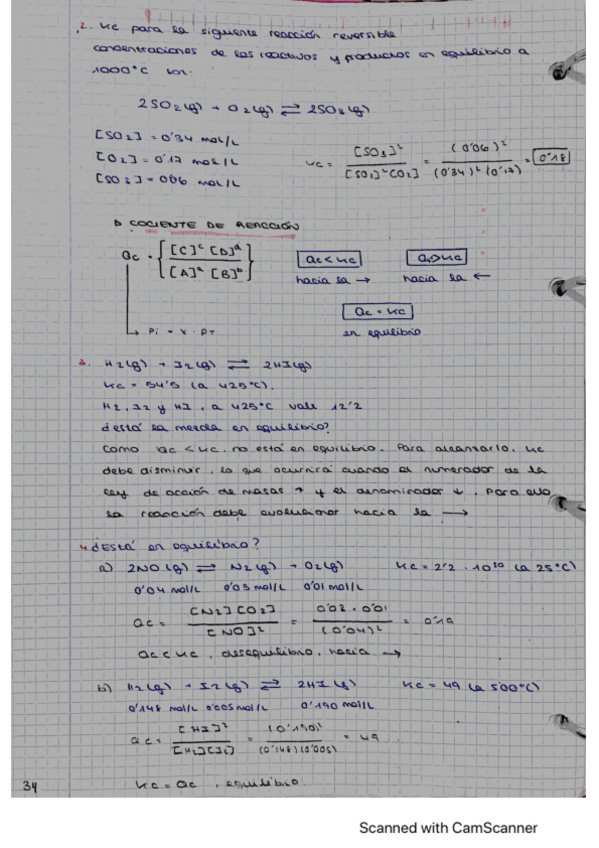 2. Kc para la siguiente reacción reversible
concentraciones de los reactivos y productos en equilibrio a
1000°C son:
2SO2(g) + O2(g) ⇌ 2SO3(g)
[SO2] = 0'34 mol/L
[O2] = 0'17 mol/L
[SO3] = 0'06 mol/L
Kc = [SO3]² / [SO2]²[O2] = (0'06)² / (0'34)² (0'17) = 0'18
▷ COCIENTE DE REACCIÓN
Qc = { [C]^c [D]^d / [A]^a [B]^b }
Qc < Kc
Qc > Kc
hacia la →
hacia la ←
Qc = Kc
en equilibrio
Pi = X · PT
3. H2(g) + I2(g) ⇌ 2HI(g)
Kc = 54'5 (a 425°C).
H2, I2 y HI, a 425°C vale 12'2
¿está la mezcla en equilibrio?
Como Qc < Kc, no está en equilibrio. Para alcanzarlo, Kc
debe disminuir, lo que ocurrirá cuando el numerador de la
ley de acción de masas ↑ y el denominador ↓. Para ello
la reacción debe evolucionar hacia la →
4. ¿Está en equilibrio?
a) 2NO(g) ⇌ N2(g) + O2(g) Kc = 2'2 · 10³⁰ (a 25°C)
0'04 mol/L 0'05 mol/L 0'01 mol/L
Qc = [N2][O2] / [NO]² = 0'03 · 0'01 / (0'04)² = 0'19
Qc < Kc, desequilibrio, hacia →
b) H2(g) + I2(g) ⇌ 2HI(g) Kc = 49 (a 500°C)
0'148 mol/L 0'005 mol/L 0'190 mol/L
Qc = [HI]² / [H2][I2] = (0'190)² / (0'148)(0'005) = 49
Kc = Qc, equilibrio.
34
Scanned with CamScanner